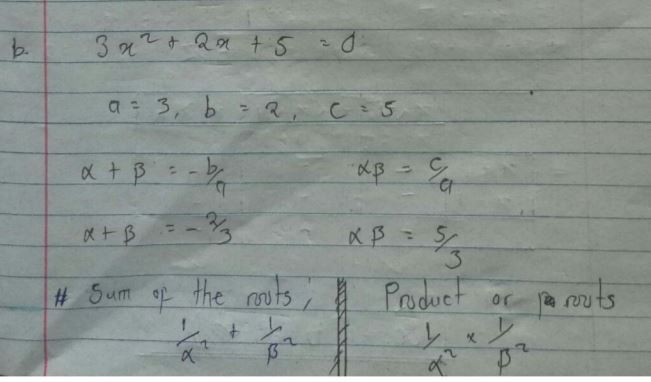 b. 3x² + 2x + 5 = 0
a = 3, b = 2, c = 5
α + β = -b/a αβ = c/a
α + β = -2/3 αβ = 5/3
# Sum of the roots; Product or roots
1/α² + 1/β² 1/α² × 1/β²